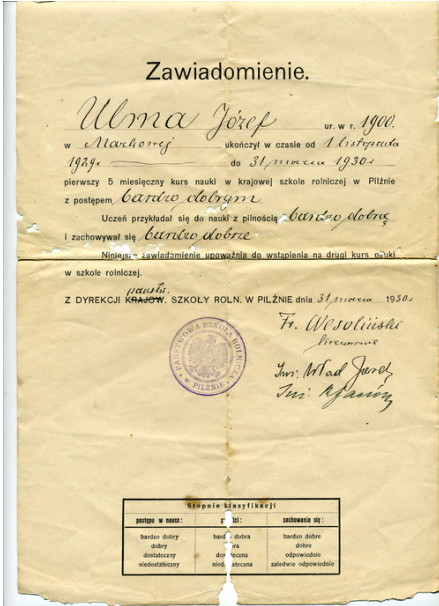 Zawiadomienie.
Ulma Józef ur. w r. 1900.
w Markowej ukończył w czasie od 1 listopada
1929 r do 31 marca 1930 r
pierwszy 5 miesięczny kurs nauki w krajowej szkole rolniczej w Pilźnie
z postępem bardzo dobrym
Uczeń przykładał się do nauki z pilnością bardzo dobrą
i zachowywał się bardzo dobrze
Niniejsze zawiadomienie upoważnia do wstąpienia na drugi kurs nauki
w szkole rolniczej.
państw.
Z DYREKCJI KRAJOW. SZKOŁY ROLN. W PILŹNIE dnia 31 marca 1930 r
Fr. Wesoliński
PAŃSTWOWA SZKOŁA ROLNICZA
W PILŹNIE
Inż. Wład
Inż.
Stopnie klasyfikacji
postępu w nauce: zachowania się:
bardzo dobry bardzo dobra bardzo dobre
dobry dobre
dostateczny dostateczna odpowiednie
niedostateczny niedostateczna zaledwie odpowiednie